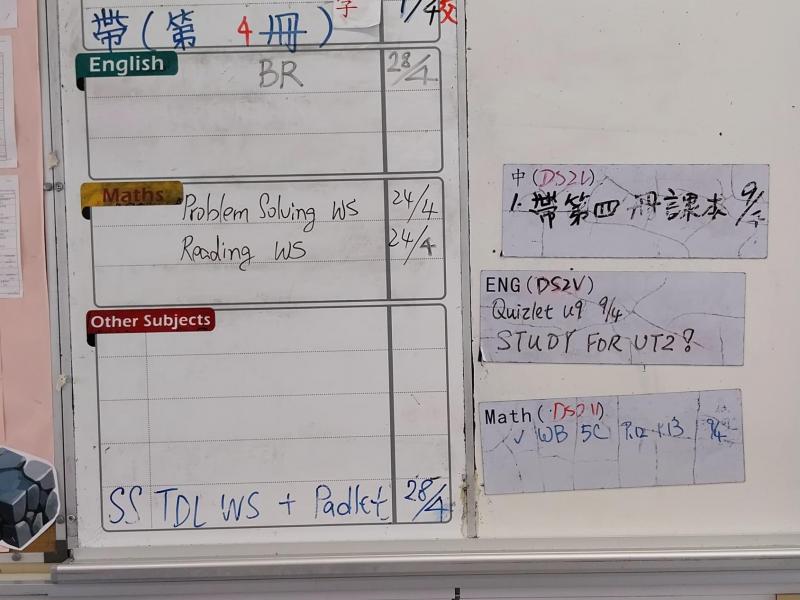 帶(第4冊) 1/4
English
BR 28/4
Maths
Problem Solving WS 24/4
Reading WS 24/4
Other Subjects
SS TDL WS + Padlet 28/4
中(DS2V)
1. 帶第四冊課本 9/4
ENG(DS2V)
Quizlet u9 9/4
STUDY FOR UT2?
Math(DS2V)
✓ WB 5C P.12 + 13 9/4